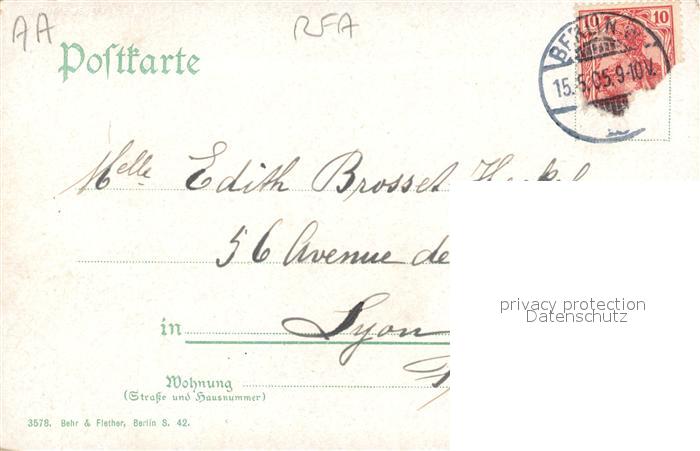 AA RFA
10 10
BERLIN
Postkarte
15.5.05.9-10V.
Melle Edith Brosset
56 Avenue de
privacy protection
Datenschutz
in Lyon
Wohnung
(Straße und Hausnummer)
3578. Behr & Flether, Berlin S. 42.